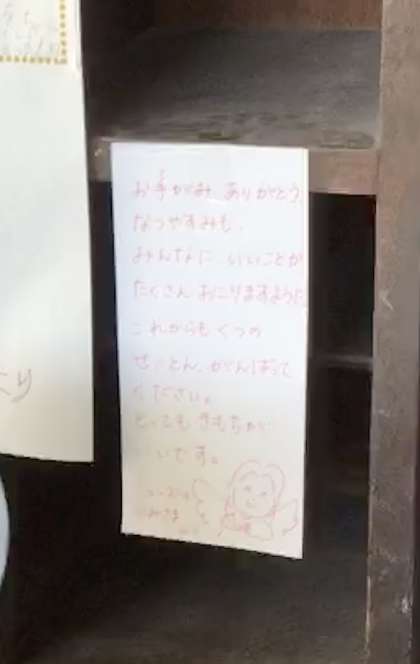 お手がみ ありがとう。
なつやすみも、
みんなに いいことが
たくさん おこりますように。
これからも くつの
せいとん、がんばって
ください。
とっても きもちが
いいです。